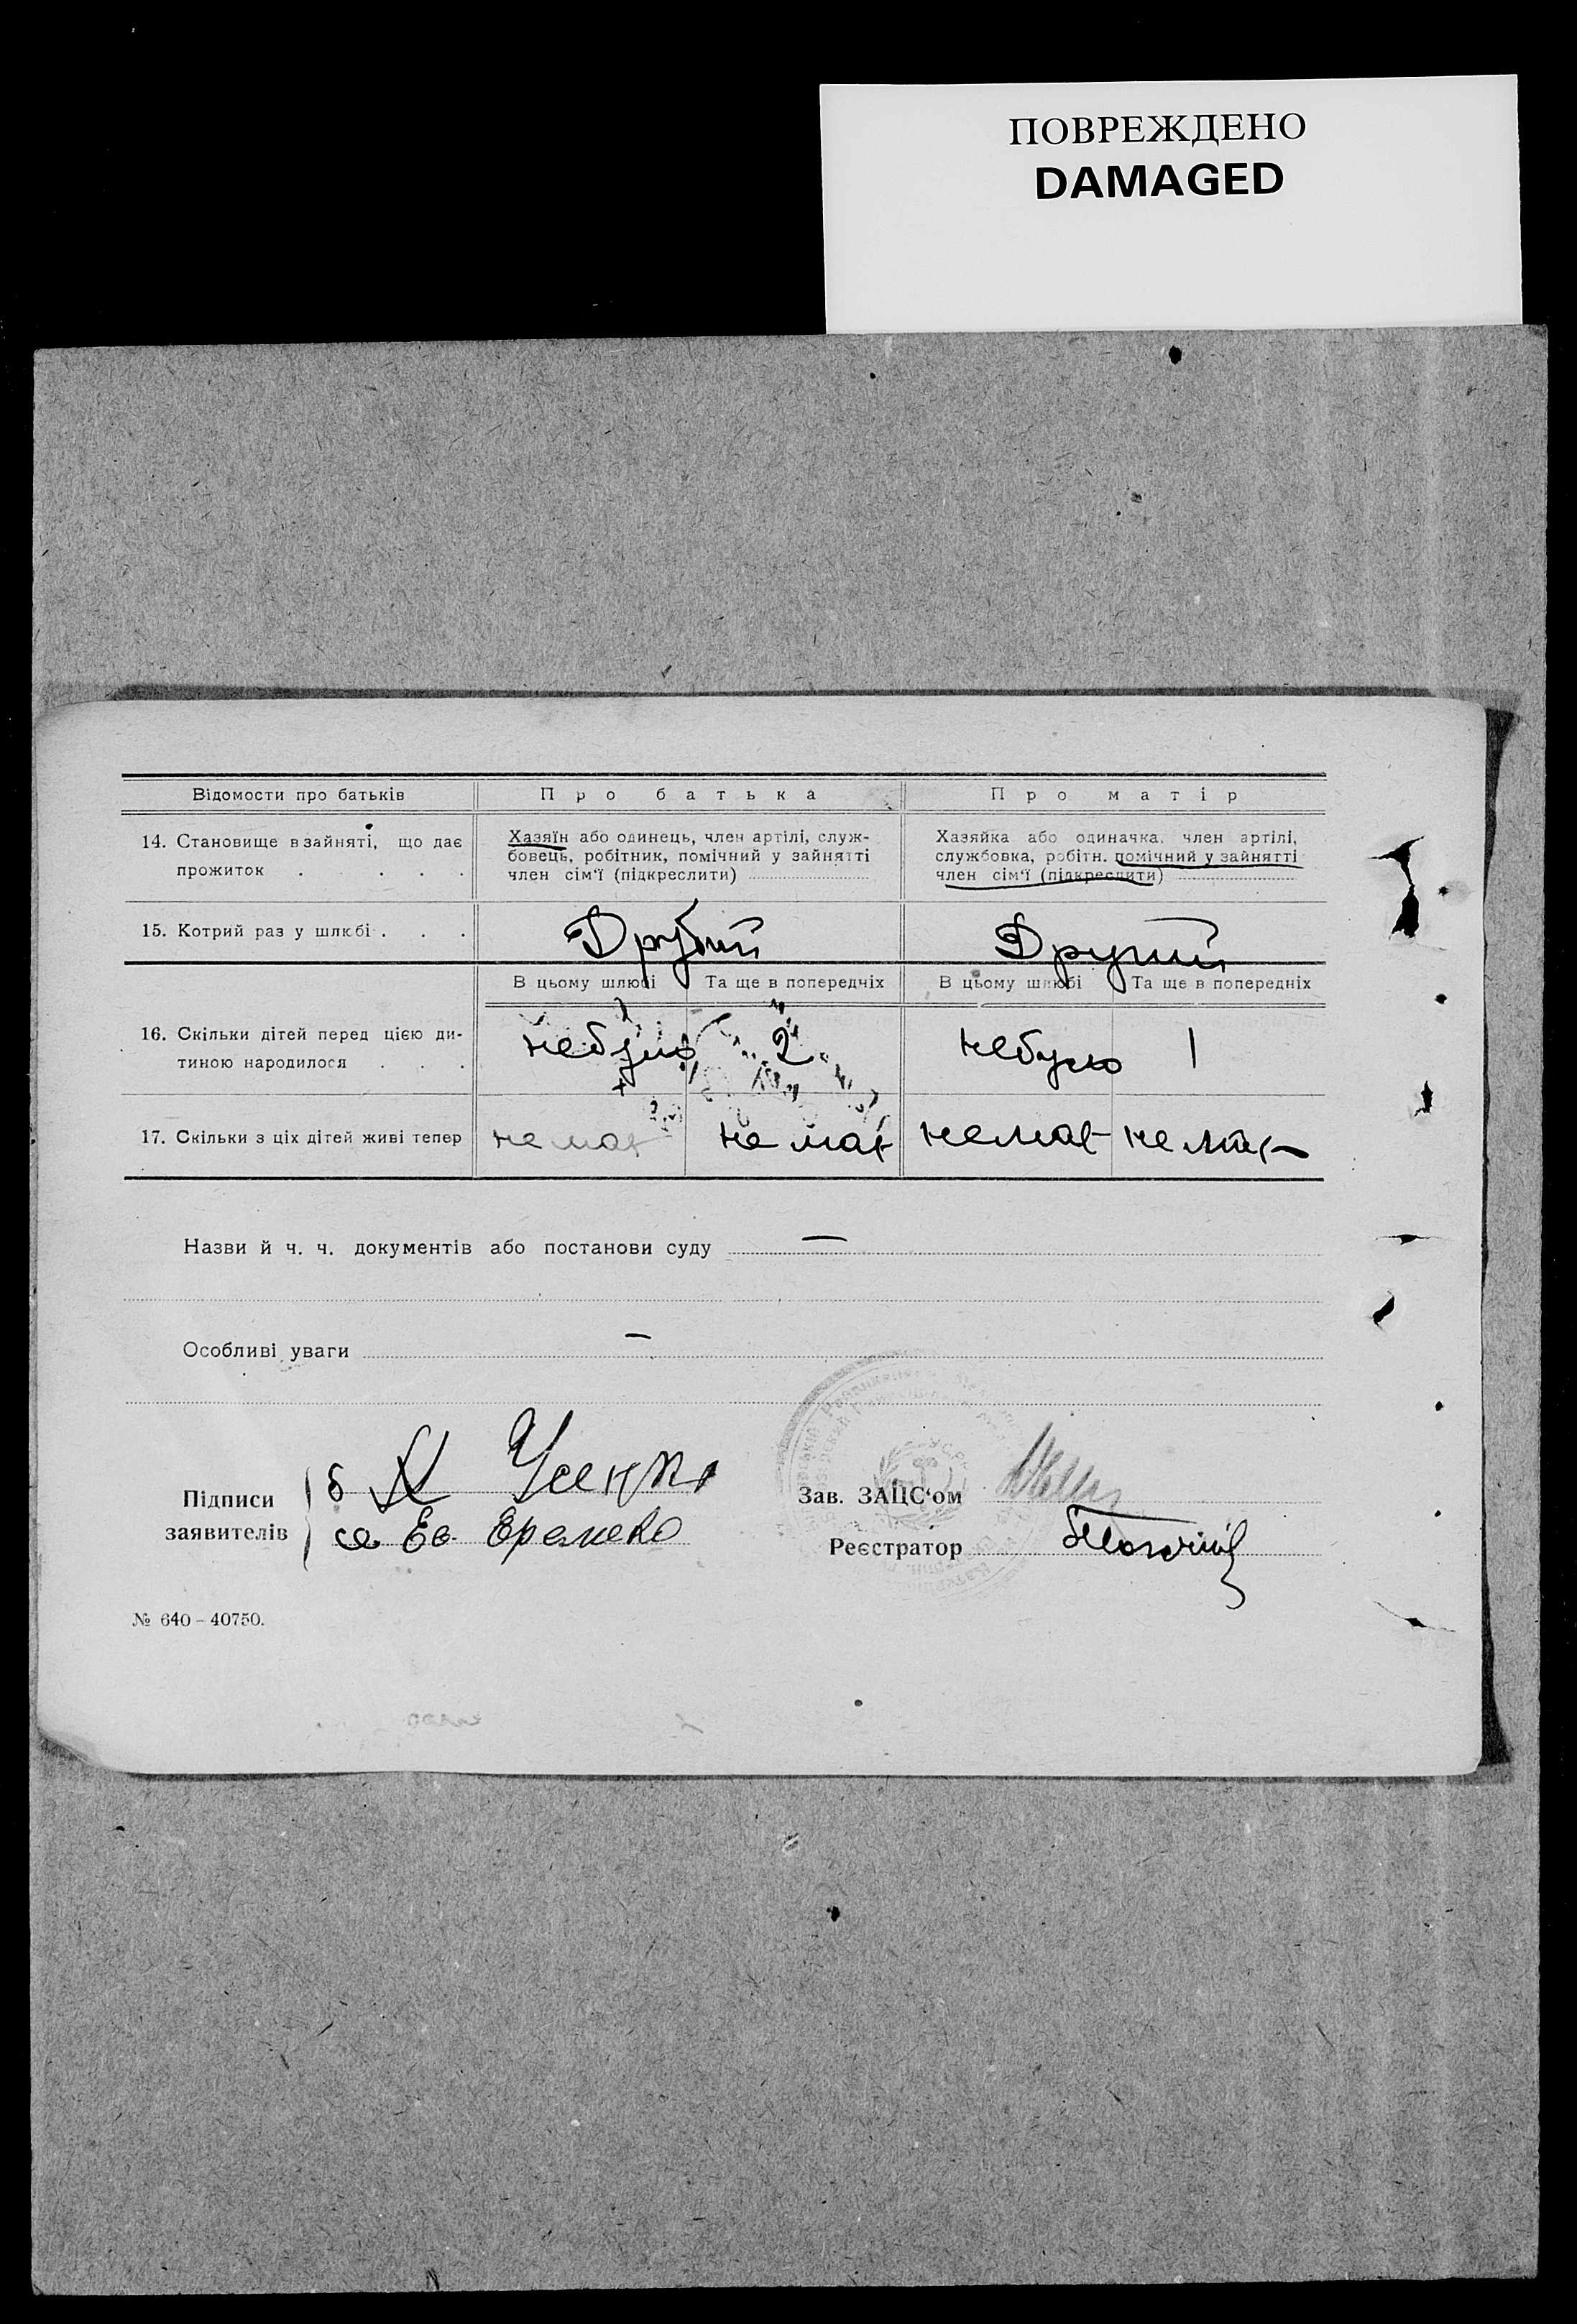 ПОВРЕЖДЕНО
DAMAGED
Відомости про батьків
Про батька
Про матір
14. Становище в зайняті, що дає
прожиток . . . .
Хазяїн або одинець, член артілі, служ-
бовець, робітник, помічний у зайнятті
член сім'ї (підкреслити)
Хазяйка або одиначка, член артілі,
службовка, робітн. помічний у зайнятті
член сім'ї (підкреслити)
15. Котрий раз у шлюбі . . .
Другий
Другий
В цьому шлюбі
Та ще в попередніх
В цьому шлюбі
Та ще в попередніх
16. Скільки дітей перед цією ди-
тиною народилося . . .
небуло
2
небуло
1
17. Скільки з ціх дітей живі тепер
немає
немає
немає
немає
Назви й ч. ч. документів або постанови суду —
Особливі уваги —
Підписи
заявителів
б Х Усенко
Ев. Еременко
Зав. ЗАЦС'ом
Реєстратор
№ 640 – 40750.